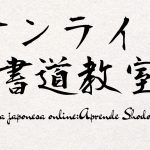 ンライ
書道教室
a japonesa online:Aprende Shodo